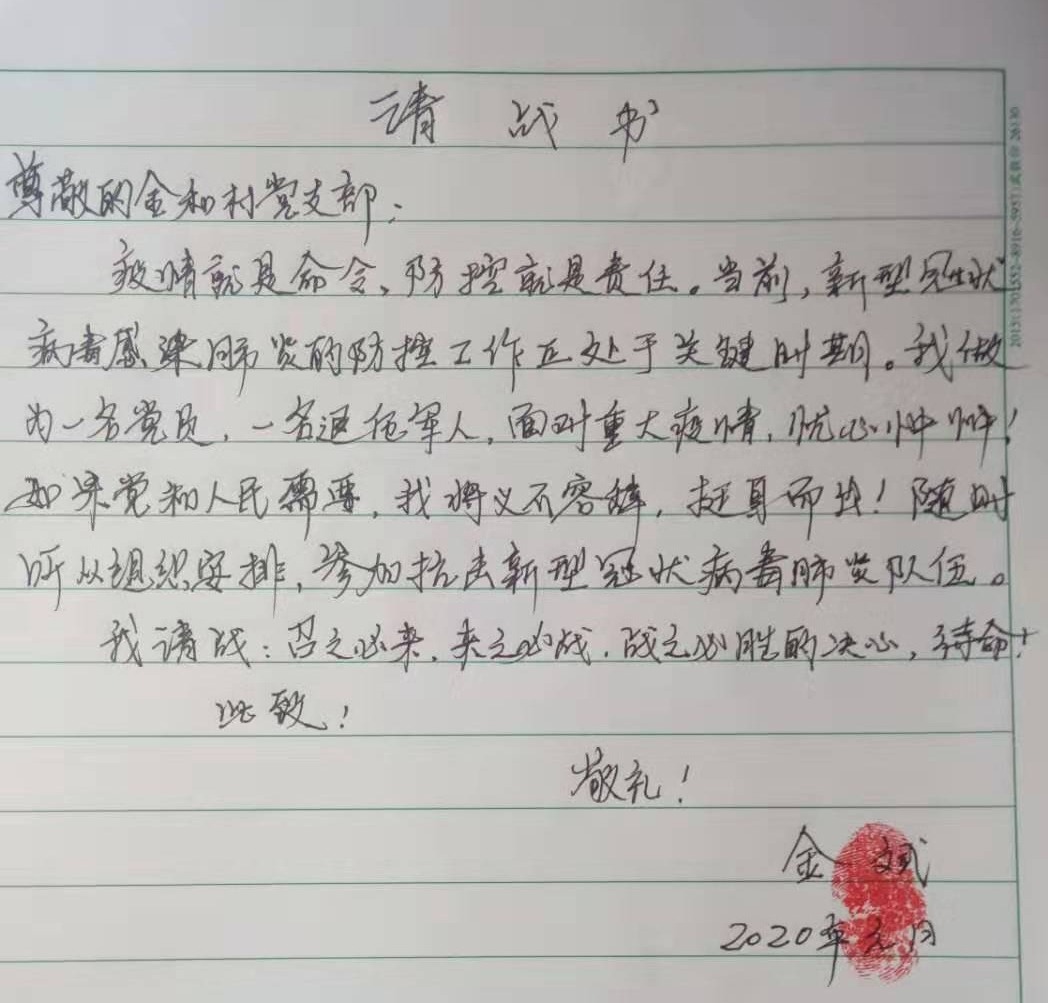 请战书
尊敬的金和村党支部：
疫情就是命令、防控就是责任。当前，新型冠状
病毒感染肺炎的防控工作正处于关键时期。我做
为一名党员，一名退伍军人，面对重大疫情，忧心忡忡！
如果党和人民需要，我将义不容辞，挺身而出！随时
听从组织安排，参加抗击新型冠状病毒肺炎队伍。
我请战：召之必来，来之必战，战之必胜的决心，待命！
此致！
敬礼！
金斌
2020年元月